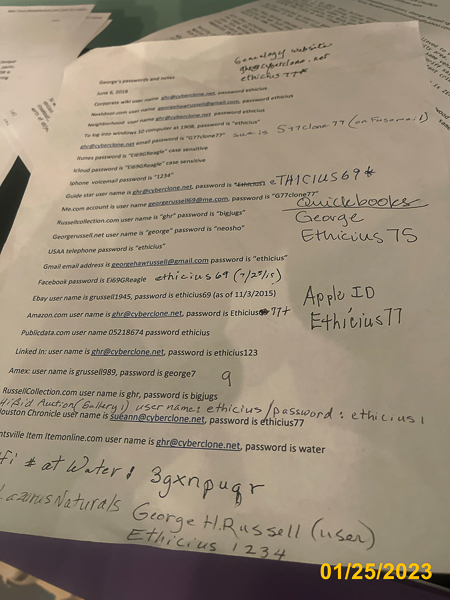 Genealogy website
ghr@cyberclone.net
ethicius77*
George's passwords and notes
June 6, 2018
Corporate wiki user name ghr@cyberclone.net, password ethicius
Nextdoor.com user name georgehawrussell@gmail.com, password ethicius
Neighborhood user name ghr@cyberclone.net, password ethicius
To log into windows 10 computer at 1908, password is "ethicius"
ghr@cyberclone.net email password is "G77clone77" sue is S77clone77 (on Fusemail)
Itunes password is "Ei69GReagle" case sensitive
Icloud password is "Ei69GReagle" case sensitive
Iphone voicemail password is "1234"
Guide star user name is ghr@cyberclone.net, password is eTHICIUS69*
Me.com account is user name georgerussell69@me.com, password is "G77clone77"
Russellcollection.com user name is "ghr" password is "bigjugs"
Georgerussell.net user name is "george" password is "neosho"
USAA telephone password is "ethicius"
Quickbooks
George
Ethicius 75
Gmail email address is georgehawrussell@gmail.com password is "ethicius"
Facebook password is Ei69GReagle ethicius69 (7/25/15)
Ebay user name is grussell1945, password is ethicius69 (as of 11/3/2015)
Amazon.com user name is ghr@cyberclone.net, password is Ethicius 77+
Apple ID
Ethicius77
Publicdata.com user name 05218674 password ethicius
Linked In: user name is ghr@cyberclone.net, password is ethicius123
Amex: user name is grussell989, password is george7 9
RussellCollection.com user name is ghr, password is bigjugs
HiBid Auction (Gallery 1) user name: ethicius/password: ethicius1
Houston Chronicle user name is sueann@cyberclone.net, password is ethicius77
ntsville Item Itemonline.com user name is ghr@cyberclone.net, password is water
Fi # at Water 3gxnpuqr
Lazarus Naturals George H. Russell (user)
Ethicius 1234
01/25/2023